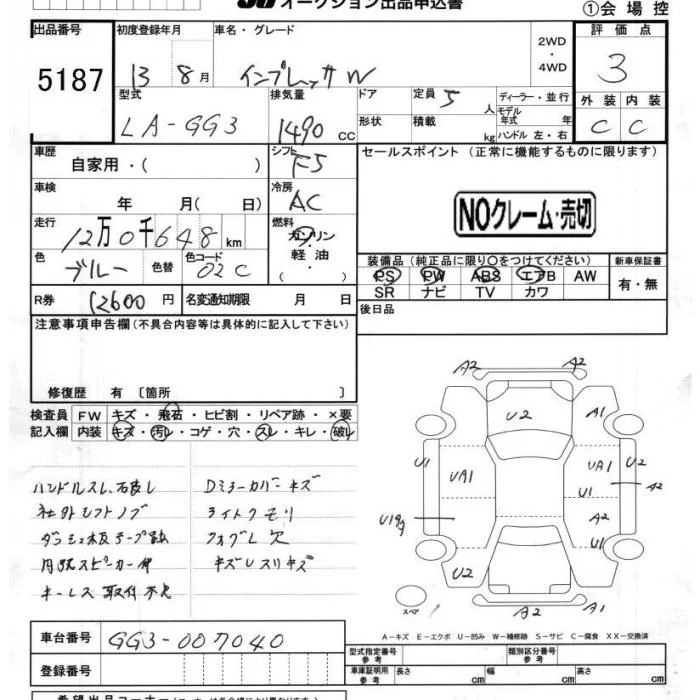 オークション出品申込書
①会場控
出品番号
5187
初度登録年月
13 8月
車名・グレード
インプレッサW
2WD
・
4WD
評価点
3
型式
LA-GG3
排気量
1490 CC
ドア
形状
定員 5 人
積載 kg
ディーラー・並行
モデル年式 年
ハンドル 左・右
外装 内装
C C
車歴
自家用・( )
シフト
F5
セールスポイント (正常に機能するものに限ります)
NOクレーム・売切
車検
年 月( 日)
冷房
AC
走行
12万0千648km
燃料
ガソリン
・軽油・
( )
色
ブルー
色替
色コード
02C
装備品(純正品に限り○をつけてください)
PS PW ABS エアB AW
SR ナビ TV カワ
新車保証書
有・無
R券
12600円
名変通知期限 月 日
後日品
注意事項申告欄(不具合内容等は具体的に記入して下さい)
修復歴 有〔箇所 〕
検査員記入欄
FW キズ・飛石・ヒビ割・リペア跡・×要
内装 キズ・汚れ・コゲ・穴・スレ・キレ・破レ
ハンドルスレ、
社外シフトノブ
キーレス取付不良
Dミラーカバーキズ
ライトクモリ
フォグL欠
A2 A2
U2 A1
U1 UA1 UA1 U2
U1 A2
A2
U1
U2
スペア
A2 A1
A-キズ E-エクボ U-凹み W-補修跡 S-サビ C-腐食 XX-交換済
車台番号
GG3-007040
登録番号
型式指定番号
参考
類別区分番号
参考
車庫証明用
参考
長さ cm 幅 cm 高さ cm